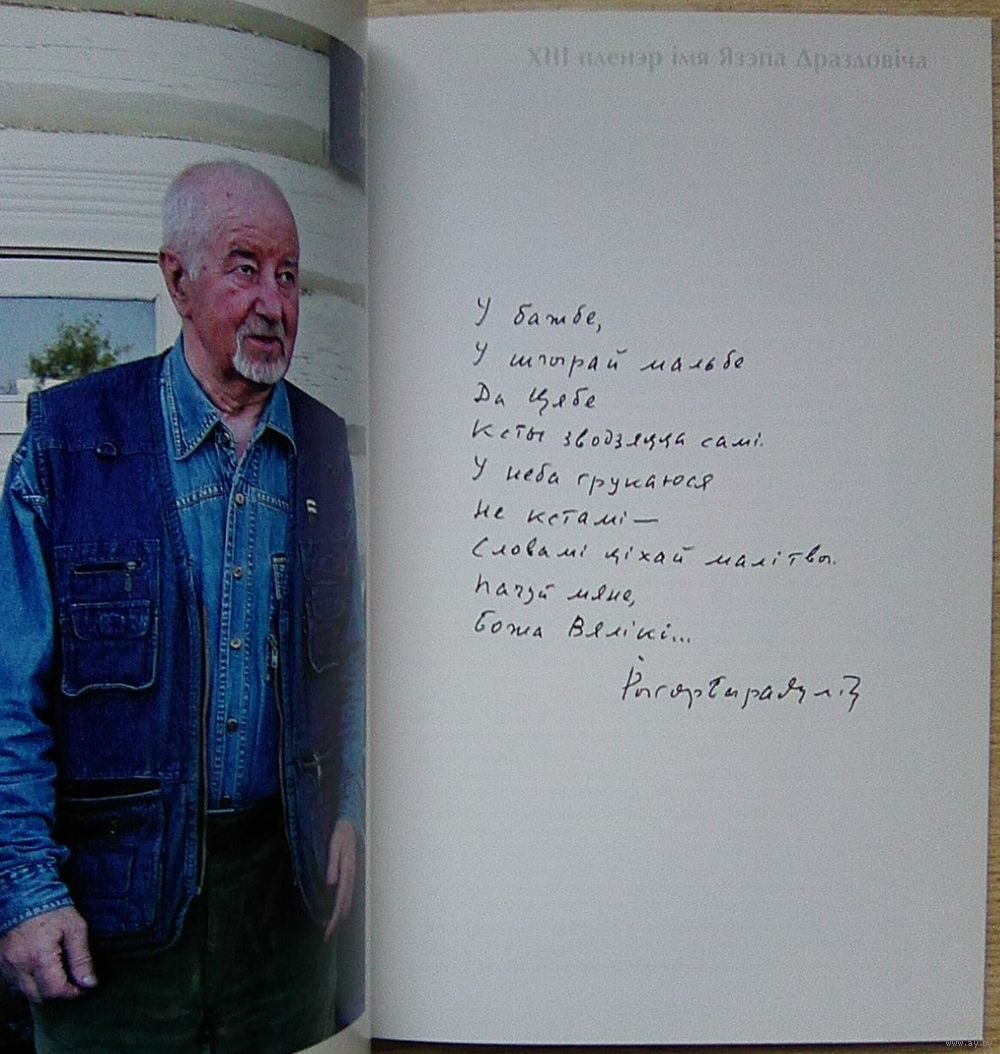 XIII пленэр імя Язэпа Драздовіча
У бажбе,
У шчырай мальбе
Да Цябе
Ксты зводзяцца самі.
У неба грукаюся
Не кстамі—
Словамі ціхай малітвы.
Пачуй мяне,
Божа Вялікі...
Рыгор Барадулін
www.ay.by